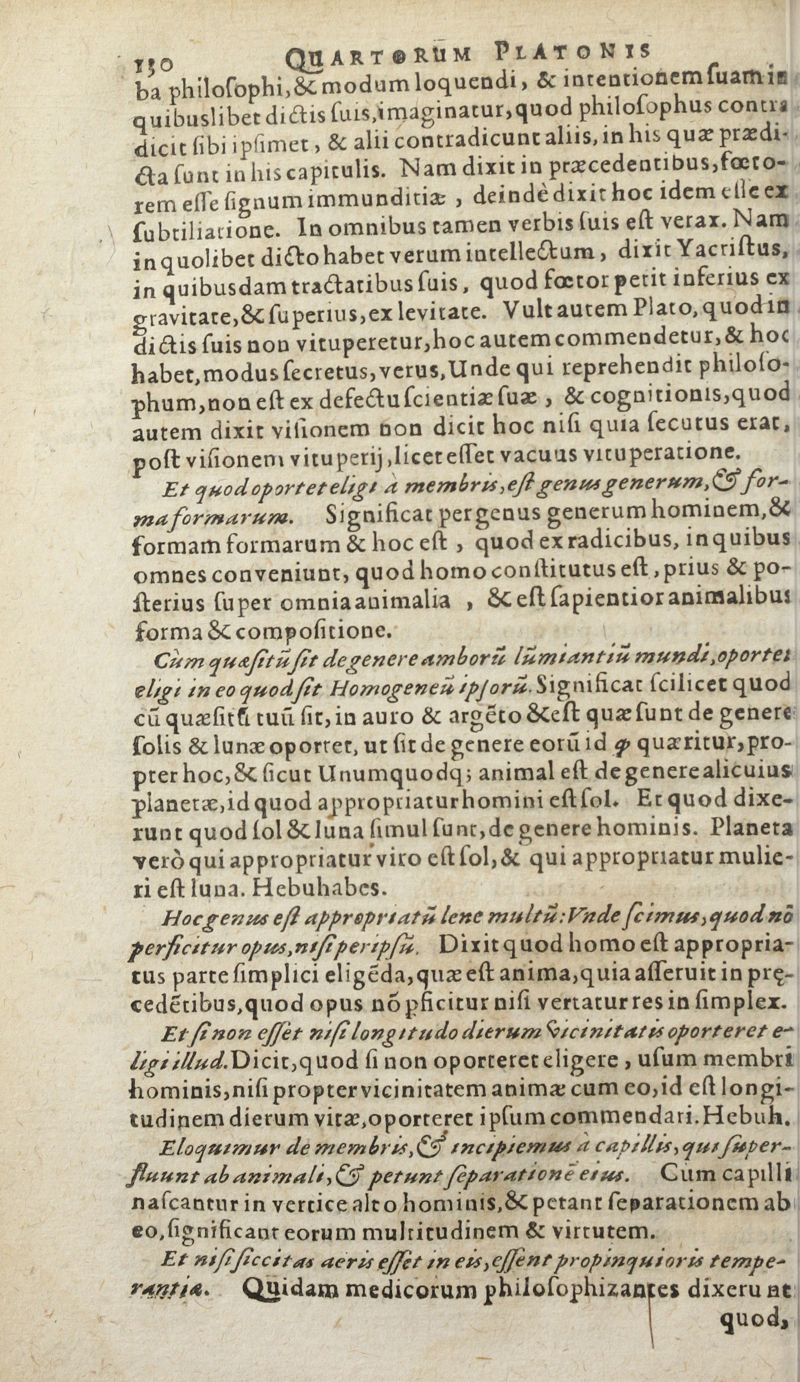 150 QUARTORUM PLATONIS
ba philosophi,& modum loquendi, & intentionem suam in
quibuslibet dictis suis,imaginatur,quod philosophus contra
dicit sibi ipsimet, & alii contradicunt aliis, in his quæ prædi-
cta sunt in his capitulis. Nam dixit in præcedentibus,fœto-
rem esse signum immunditiæ , deindè dixit hoc idem esse ex
subtiliatione. In omnibus tamen verbis suis est verax. Nam
in quolibet dicto habet verum intellectum, dixit Yacristus,
in quibusdam tractatibus suis, quod fœtor petit inferius ex
gravitate,& superius,ex levitate. Vult autem Plato, quod in
dictis suis non vituperetur,hoc autem commendetur,& hoc
habet,modus secretus,verus,Unde qui reprehendit philoso-
phum,non est ex defectu scientiæ suæ , & cognitionis,quod
autem dixit visionem non dicit hoc nisi quia secutus erat,
post visionem vituperij,licet esset vacuus vituperatione.
Et quod oportet eligi à membris,est genus generum,& for-
ma formarum. Significat per genus generum hominem,&
formam formarum & hoc est , quod ex radicibus, in quibus
omnes conveniunt, quod homo constitutus est, prius & po-
sterius super omnia animalia , & est sapientior animalibus
forma & compositione.
Cùm quæsitũ sit de genere amborũ lumiantiũ mundi,oportet
eligi in eo quod sit Homogeneũ ipsorũ. Significat scilicet quod
cũ quæsitũ tuũ sit, in auro & argẽto & est quæ sunt de genere
solis & lunæ oportet, ut sit de genere eorũ id ꝙ quæritur,pro-
pter hoc,& sicut Unumquodq; animal est de genere alicuius
planetæ,id quod appropriatur homini est sol. Et quod dixe-
runt quod sol & luna simul sunt,de genere hominis. Planeta
verò qui appropriatur viro est sol,& qui appropriatur mulie-
ri est luna. Hebuhabes.
Hoc genus est appropriatũ lene multũ: Vnde scimus,quod nõ
perficitur opus,nisi per ipsũ. Dixit quod homo est appropria-
tus parte simplici eligẽda,quæ est anima,quia asseruit in prę-
cedẽtibus,quod opus nõ pficitur nisi vertatur res in simplex.
Et si non esset nisi longitudo dierum vicinitatis oporteret e-
ligi illud. Dicit,quod si non oporteret eligere , usum membri
hominis,nisi propter vicinitatem animæ cum eo,id est longi-
tudinem dierum vitæ,oporteret ipsum commendari. Hebuh.
Eloquimur de membris,& incipiemus à capillis,qui super-
fluunt ab animali,& petunt separationẽ eius. Cùm capilli
nascantur in vertice alto hominis,& petant separationem ab
eo,significant eorum multitudinem & virtutem.
Et nisi siccitas aeris esset in eis,essent propinquioris tempe-
rantia. Quidam medicorum philosophizantes dixerunt
quod,